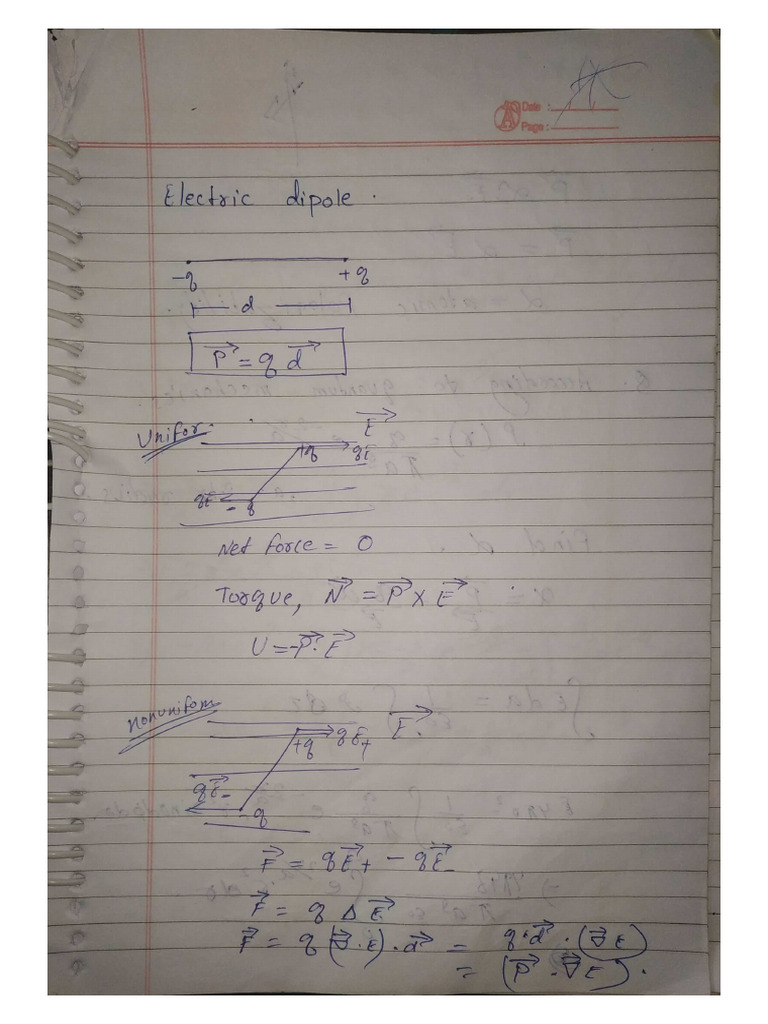 Date :
Page :
Electric dipole .
-q +q
d
P⃗ = q d⃗
Unifor.
E⃗
+q qE⃗
qE⃗ -q
Net force = 0
Torque, N⃗ = P⃗ × E⃗
U = -P⃗·E⃗
Nonuniform
+q qE⃗+ E⃗
qE⃗-
-q
F⃗ = qE⃗+ - qE⃗-
F⃗ = q Δ E⃗
F⃗ = q (∇⃗·E)·d⃗ = q·d⃗·(∇⃗E)
= (P⃗·∇⃗E).